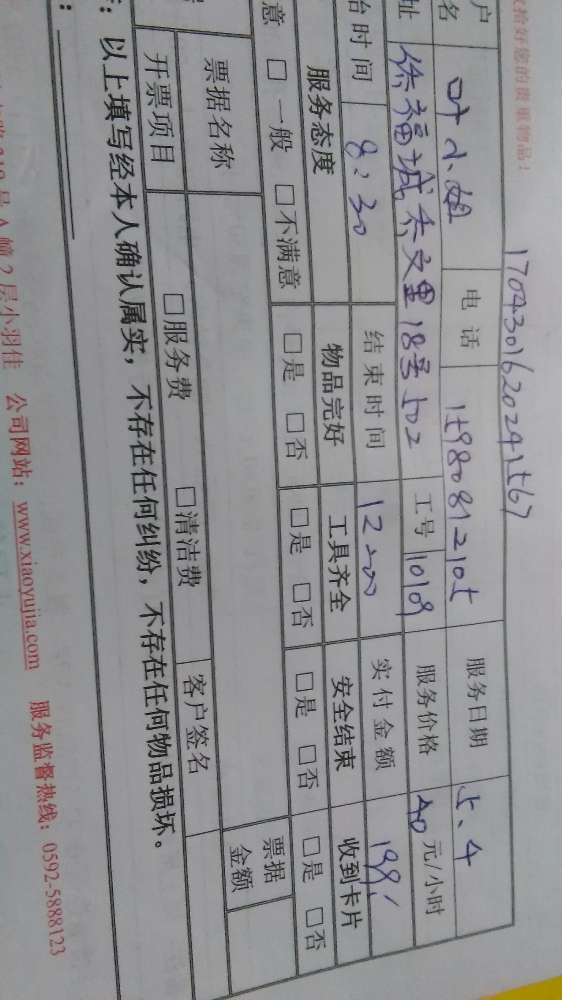 收拾好您的贵重物品！
17043016202421567
户名 叶小姐 电话 15980812105 服务日期 5、4
址 禾福城禾文里18号502 工号 10109 服务价格 40 元/小时
始时间 8:30 结束时间 12:00 实付金额
服务态度 物品完好 工具齐全 安全结束 收到卡片
意 □一般 □不满意 □是 □否 □是 □否 □是 □否 □是 □否
票据名称 票据金额
开票项目 □服务费 □清洁费 客户签名
：以上填写经本人确认属实，不存在任何纠纷，不存在任何物品损坏。
：
号A幢2层小羽佳 公司网站：www.xiaoyujia.com 服务监督热线：0592-5888123